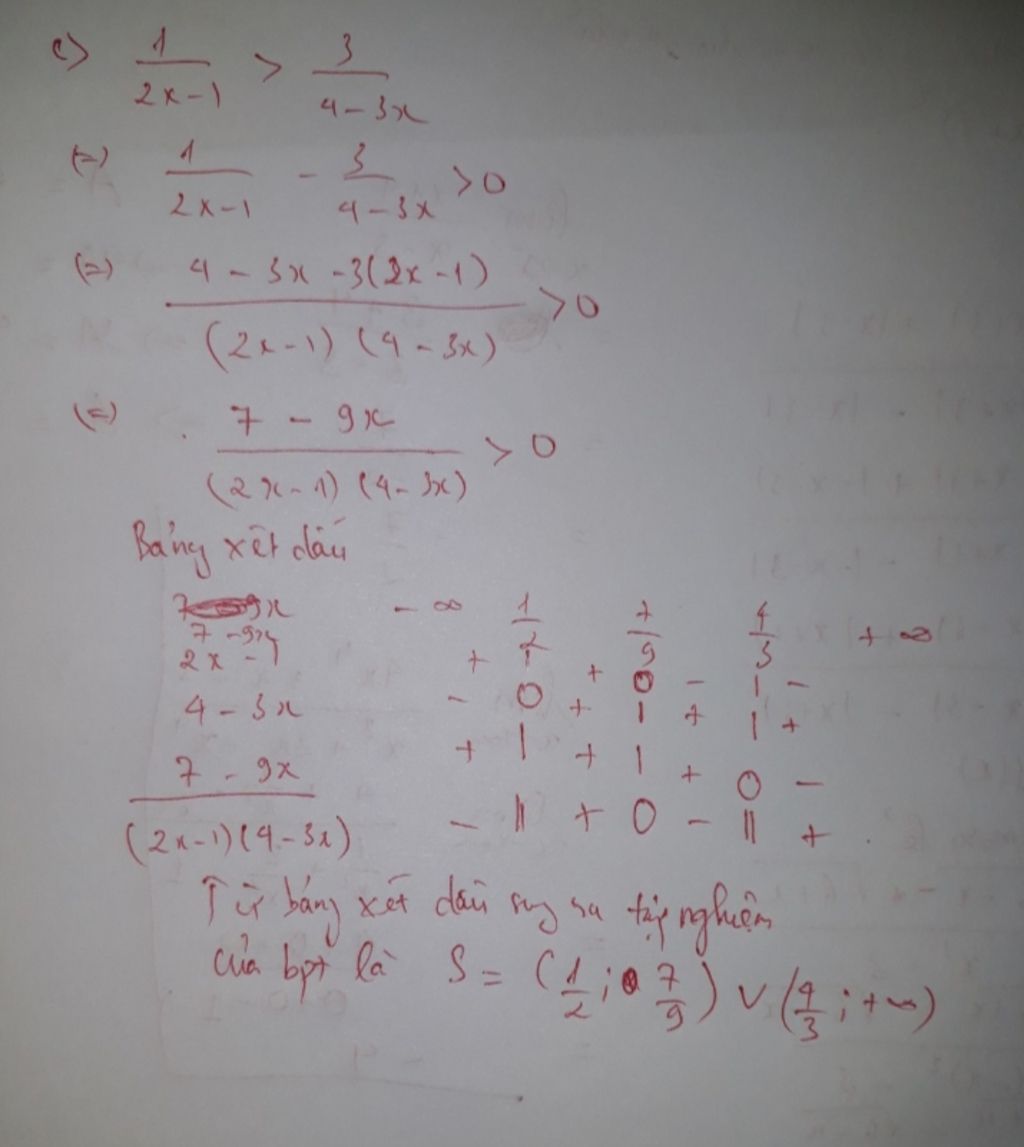 c) 1/(2x-1) > 3/(4-3x)
(=) 1/(2x-1) - 3/(4-3x) >0
(=) (4-3x-3(2x-1))/((2x-1)(4-3x)) >0
(=) (7-9x)/((2x-1)(4-3x)) > 0
Bảng xét dấu
-∞ 1/2 7/9 4/3 +∞
7-9x + | + 0 - | -
2x-1 - 0 + | + | +
4-3x + | + | + 0 -
(7-9x)/((2x-1)(4-3x)) - || + 0 - || +
Từ bảng xét dấu suy ra tập nghiệm
của bpt là S = (1/2; 7/9) ∨ (4/3; +∞)